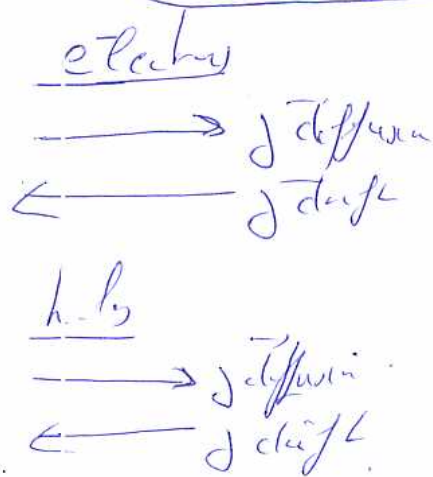 electrons
→ j diffusion
← j drift
holes
→ j diffusion
← j drift